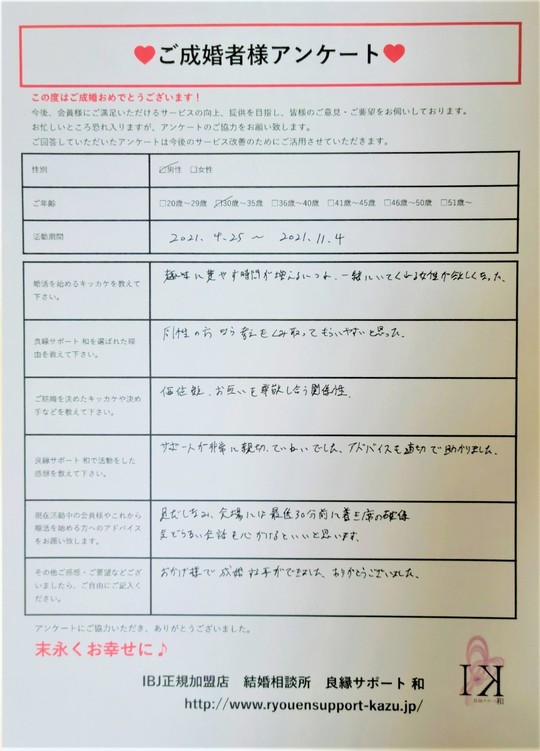 ご成婚者様アンケート
この度はご成婚おめでとうございます！
今後、会員様にご満足いただけるサービスの向上、提供を目指し、皆様のご意見・ご要望をお伺いしております。
お忙しいところ恐れ入りますが、アンケートのご協力をお願い致します。
ご回答していただいたアンケートは今後のサービス改善のためにご活用させていただきます。
性別 ☑男性 □女性
ご年齢 □20歳～29歳 ☑30歳～35歳 □36歳～40歳 □41歳～45歳 □46歳～50歳 □51歳～
活動期間 2021.4.25 ～ 2021.11.4
婚活を始めるキッカケを教えて
下さい。
趣味に費やす時間が増えるにつれ、一緒にいてくれる女性が欲しくなった。
良縁サポート 和を選ばれた理
由を教えて下さい。
同性の方なら考えをくみ取ってもらいやすいと思った。
ご結婚を決めたキッカケや決め
手などを教えて下さい。
価値観、お互いを尊敬し合う関係性。
良縁サポート 和で活動をした
感想を教えて下さい。
サポートが非常に親切、ていねいでした、アドバイスも適切で助かりました。
現在活動中の会員様やこれから
婚活を始める方へのアドバイス
をお願い致します。
身だしなみ、会場には最低30分前に着き席の確保
会話も心がけるといいと思います。
その他ご感想・ご要望などござ
いましたら、ご自由にご記入く
ださい。
おかげ様で成婚 ができました、ありがとうございました。
アンケートにご協力いただき、ありがとうございました。
末永くお幸せに♪
IBJ正規加盟店 結婚相談所 良縁サポート 和
http://www.ryouensupport-kazu.jp/
良縁サポート 和